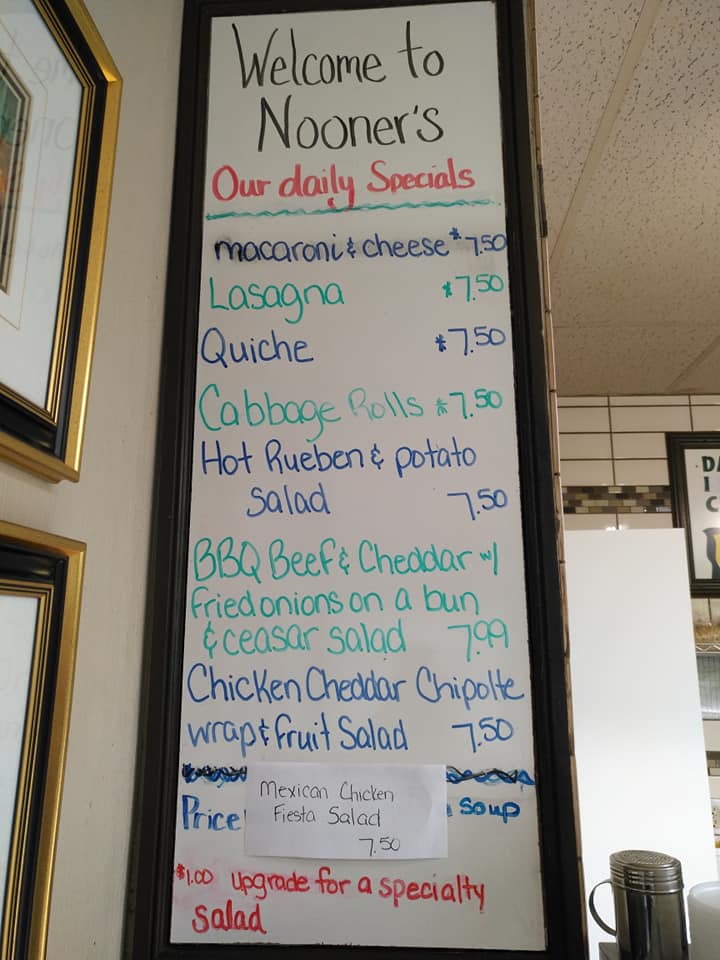 Welcome to
Nooner's
Our daily Specials
macaroni & cheese $7.50
Lasagna $7.50
Quiche $7.50
Cabbage Rolls $7.50
Hot Rueben & potato
Salad 7.50
BBQ Beef & Cheddar w/
fried onions on a bun
& ceasar salad 7.99
Chicken Cheddar Chipolte
wrap & fruit Salad 7.50
Mexican Chicken
Fiesta Salad
7.50
Price Soup
$1.00 upgrade for a specialty
salad